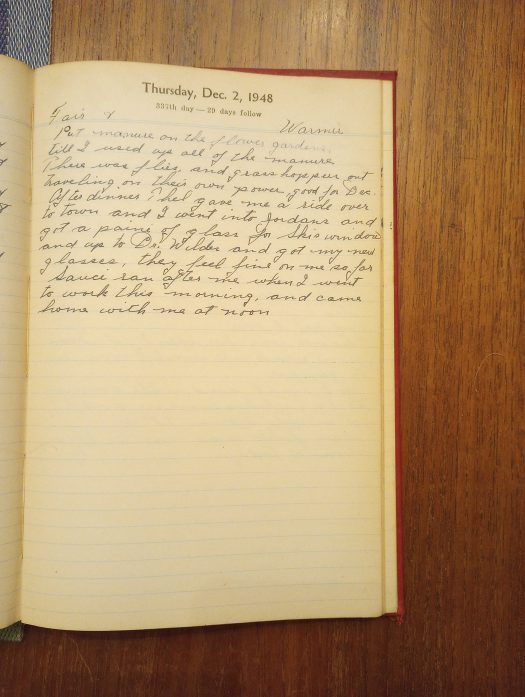 Thursday, Dec. 2, 1948
337th day — 29 days follow
Fair & Warmer
Put manure on the flower gardens,
till I used up all of the manure
There was flies and grass hopper out
traveling on their own power, good for Dec.
After dinner Phel gave me a ride over
to town and I went into Jordans and
got a paine of glass for Skis window
and up to Dr. Wilder and got my new
glasses, they feel fine on me so far
Sauci ran after me when I went
to work this morning, and came
home with me at noon